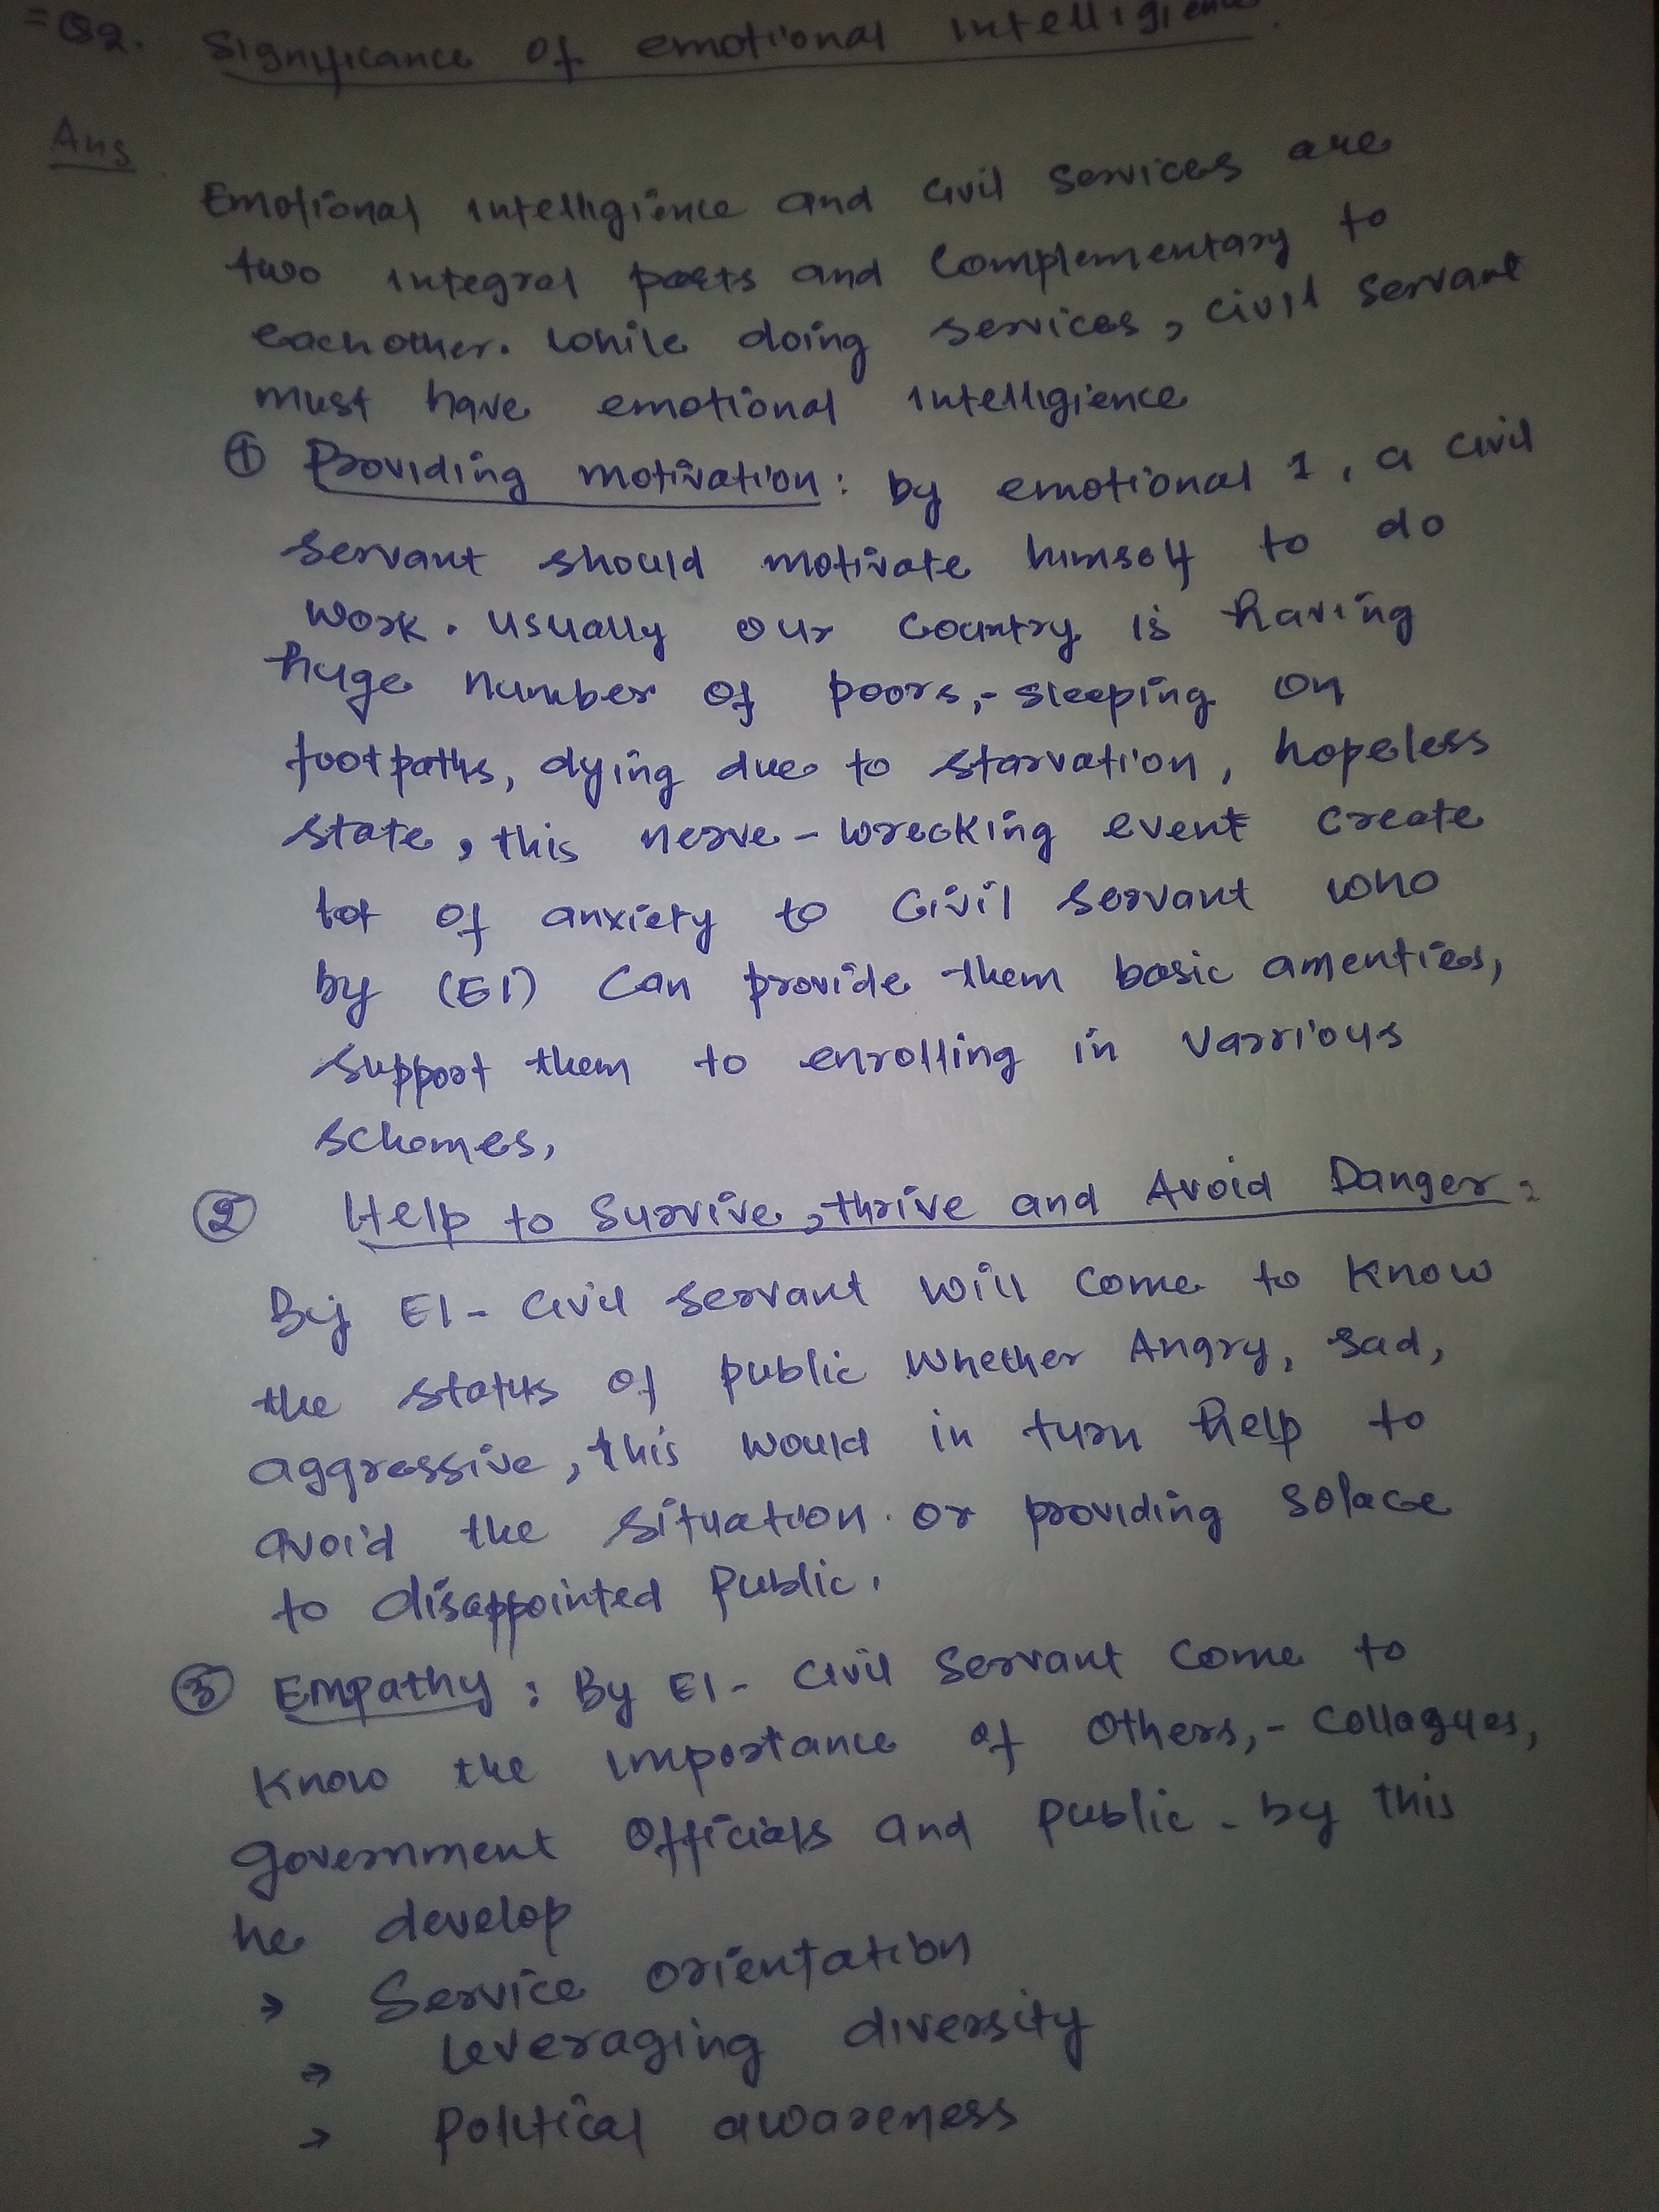 =Q2. Significance of emotional intelligience.
Ans
Emotional intelligience and civil services are
two integral parts and complementary to
each other. While doing services, civil servant
must have emotional intelligience
① Providing motivation: by emotional I, a civil
servant should motivate himself to do
work. usually our country is having
huge number of poors,- sleeping on
footpaths, dying due to starvation, hopeless
state, this nerve-wrecking event create
lot of anxiety to civil servant who
by (EI) can provide them basic amenties,
support them to enrolling in varrious
schemes,
② Help to Survive, thrive and Avoid Danger:
By EI- civil servant will come to know
the status of public whether Angry, sad,
aggressive, this would in turn help to
avoid the situation. or providing solace
to disappointed public.
③ Empathy: By EI- civil servant come to
know the importance of others,- collagues,
government officials and public. by this
he develop
→ Service orientation
→ leveraging diversity
→ political awareness